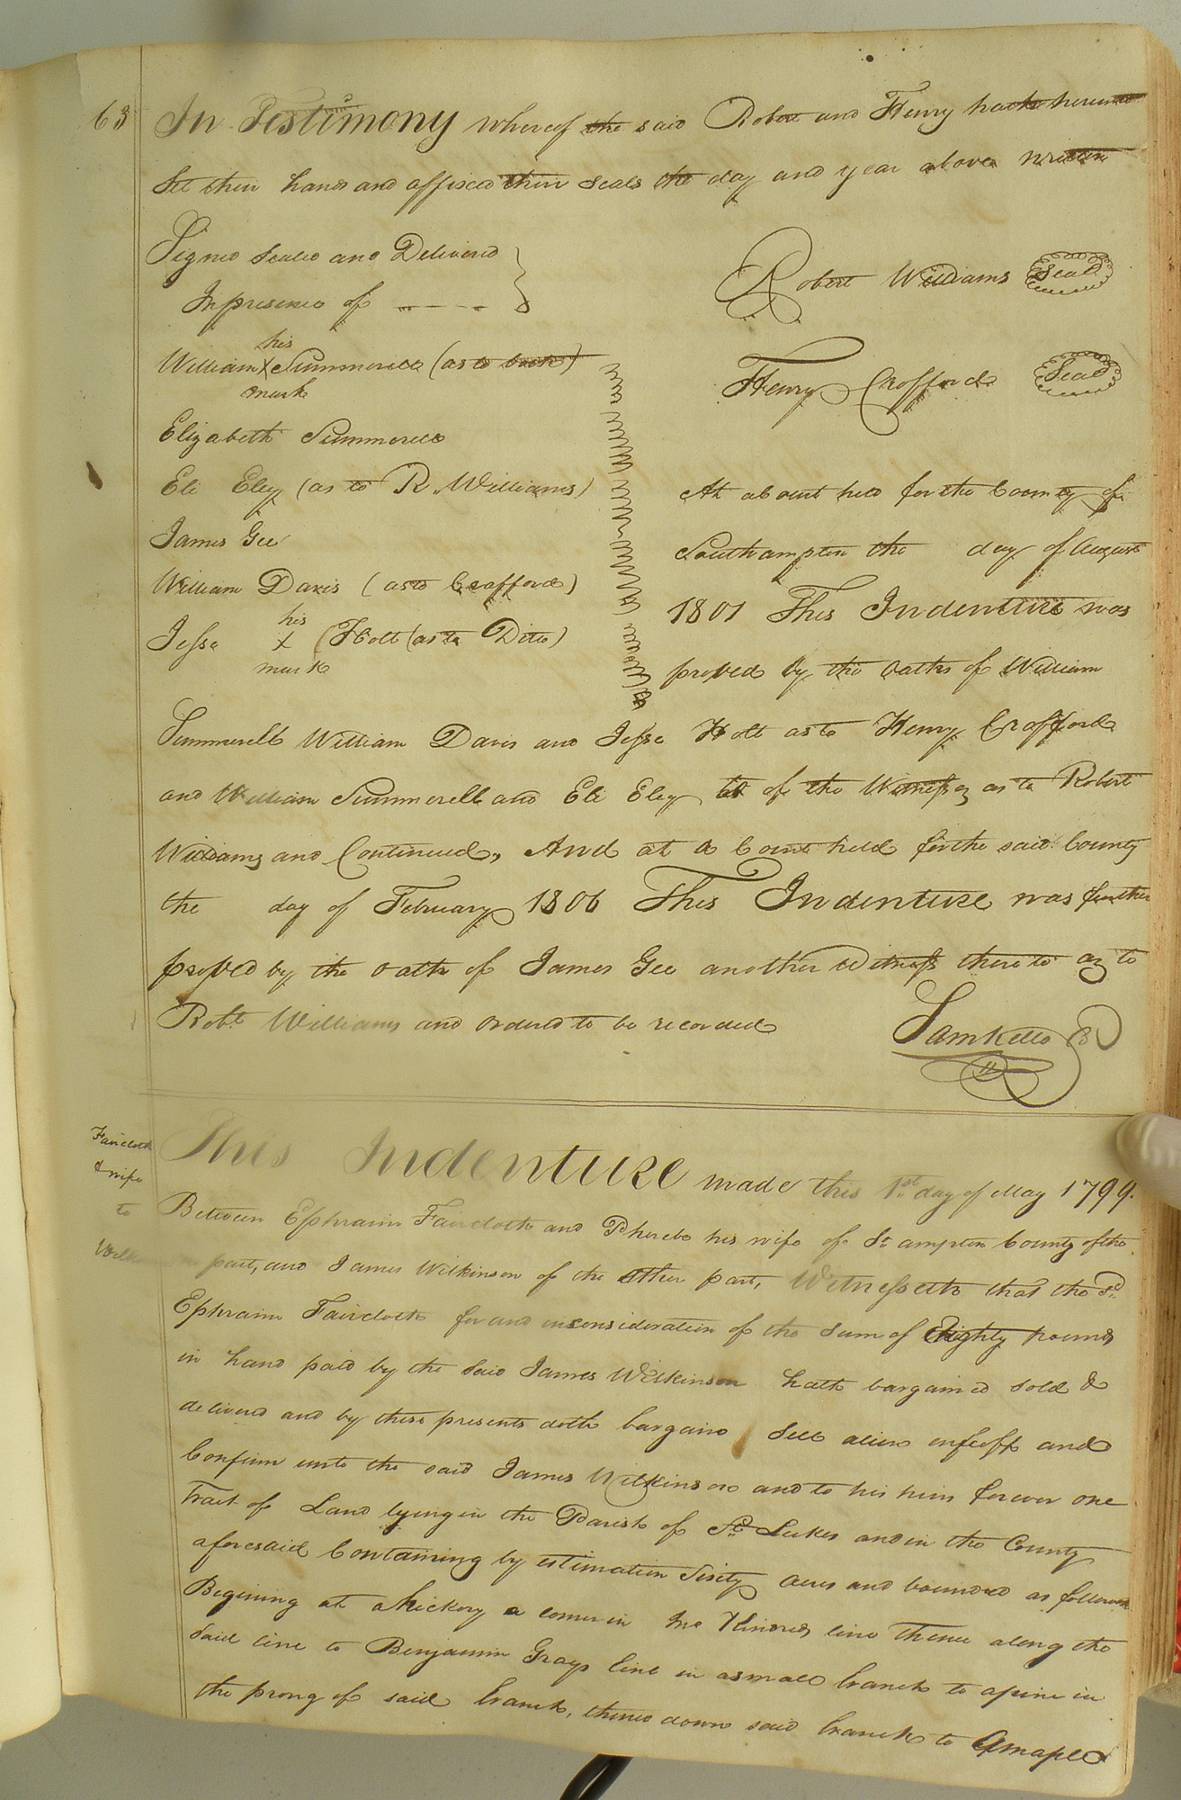 63
In Testimony whereof the said Robert and Henry hath hereunto
Set their hands and affixed their Seals the day and year above written
Signed Sealed and Delivered
In presence of
Robert Williams Seal
his
William X Summerell (as to both)
mark
Henry Crofford Seal
Elizabeth Summerell
Eli Eley (as to R. Williams)
James Gee
William Davis (as to Crafford)
his
Jesse X Holt (as to Ditto)
mark
At a Court held for the County of
Southampton the day of August
1801 This Indenture was
proved by the oaths of William
Summerell William Davis and Jesse Holt as to Henry Crofford
and William Summerell and Eli Eley of the Witnesses as to Robert
Williams and Continued, And at a Court held for the said County
the day of February 1806 This Indenture was further
proved by the oath of James Gee another Witness thereto as to
Robt Williams and ordered to be recorded
Sam Kello
Faircloth
& wife
to
This Indenture made this 1st day of May 1799.
Between Ephraim Faircloth and Pherebe his wife of St ampton County of the
part, and James Wilkinson of the other part, Witnesseth that the sd
Ephraim Faircloth for and in consideration of the Sum of Eighty pounds
in hand paid by the Said James Wilkinson hath bargained sold &
delivered and by these presents doth bargain Sell alien enfeoff and
Confirm unto the said James Wilkinson and to his heirs forever one
Tract of Land lying in the Parish of St Lukes and in the County
aforesaid Containing by estimation Sixty acres and bounded as follows
Begining at a Hickory a corner in line Thence along the
Said line to Benjamin Grays line in a small branch to a pine in
the prong of said branch, thence down said branch to a maple